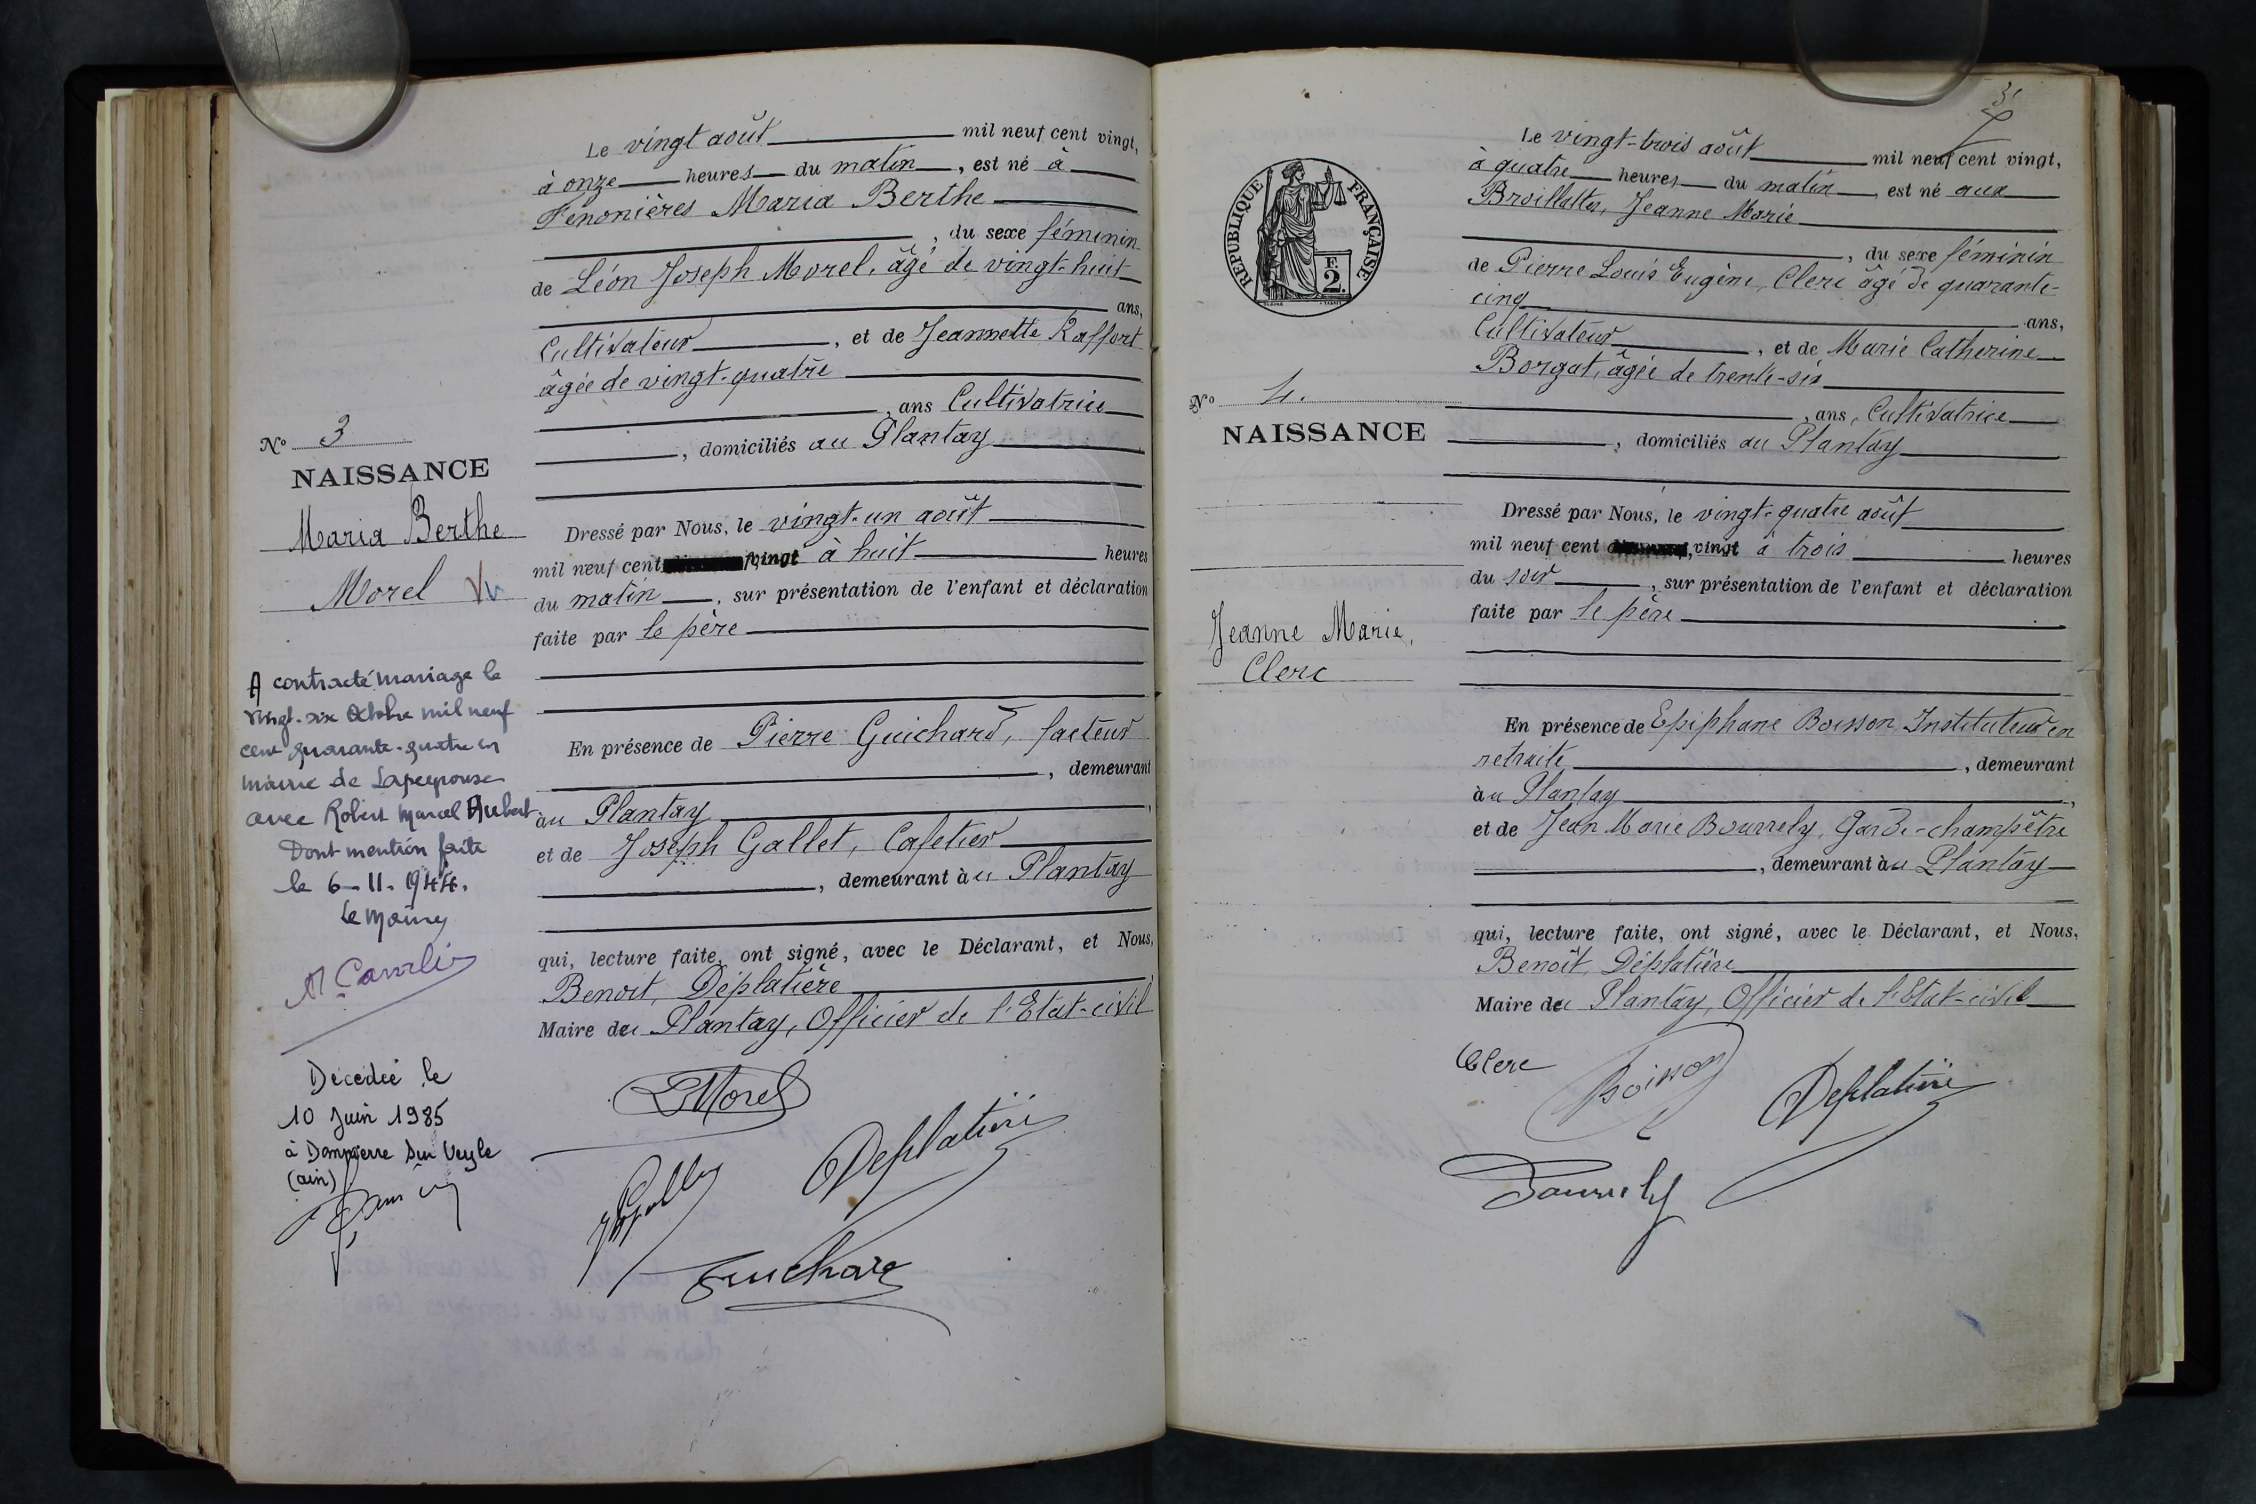 Le vingt août mil neuf cent vingt,
à onze heures du matin, est né à
Fenonières Maria Berthe
, du sexe féminin
de Léon Joseph Morel, âgé de vingt-huit
ans,
Cultivateur, et de Jeannette Raffort
âgée de vingt-quatre
, ans Cultivatrice
, domiciliés au Plantay
No 3
NAISSANCE
Maria Berthe
Morel
Dressé par Nous, le vingt-un août
mil neuf cent vingt à huit heures
du matin, sur présentation de l'enfant et déclaration
faite par le père
En présence de Pierre Guichard, facteur
, demeurant
àu Plantay,
et de Joseph Gallet, Cafetier
, demeurant àu Plantay
qui, lecture faite, ont signé, avec le Déclarant, et Nous,
Benoit, Déplatière
Maire du Plantay, Officier de l'Etat-civil
A contracté mariage le
vingt-six Octobre mil neuf
cent quarante-quatre en
mairie de Lapeyrouse
avec Robert Marcel Aubert
Dont mention faite
le 6-11-1944.
Le Maire
Décédée le
10 Juin 1985
à Dompierre sur Veyle
(ain)
LMorel
Deplatière
Guichard
31
RÉPUBLIQUE FRANÇAISE
F.
2.
Le vingt-trois août mil neuf cent vingt,
à quatre heures du matin, est né aux
Broillattes, Jeanne Marie
, du sexe féminin
de Pierre Louis Eugène, Clerc âgé de quarante-
cinq ans,
Cultivateur, et de Marie Catherine
Borgat, âgée de trente-six
, ans, Cultivatrice
, domiciliés au Plantay
No 4.
NAISSANCE
Jeanne Marie,
Clerc
Dressé par Nous, le vingt-quatre août
mil neuf cent, vingt à trois heures
du soir, sur présentation de l'enfant et déclaration
faite par le père
En présence de Epiphane Boisson, Instituteur en
retraite, demeurant
àu Plantay,
et de Jean Marie Bourrely, Garde-champêtre
, demeurant àu Plantay
qui, lecture faite, ont signé, avec le Déclarant, et Nous,
Benoît, Déplatière
Maire du Plantay, Officier de l'Etat-civil
Clerc
Boisson
Deplatière
Bourrely